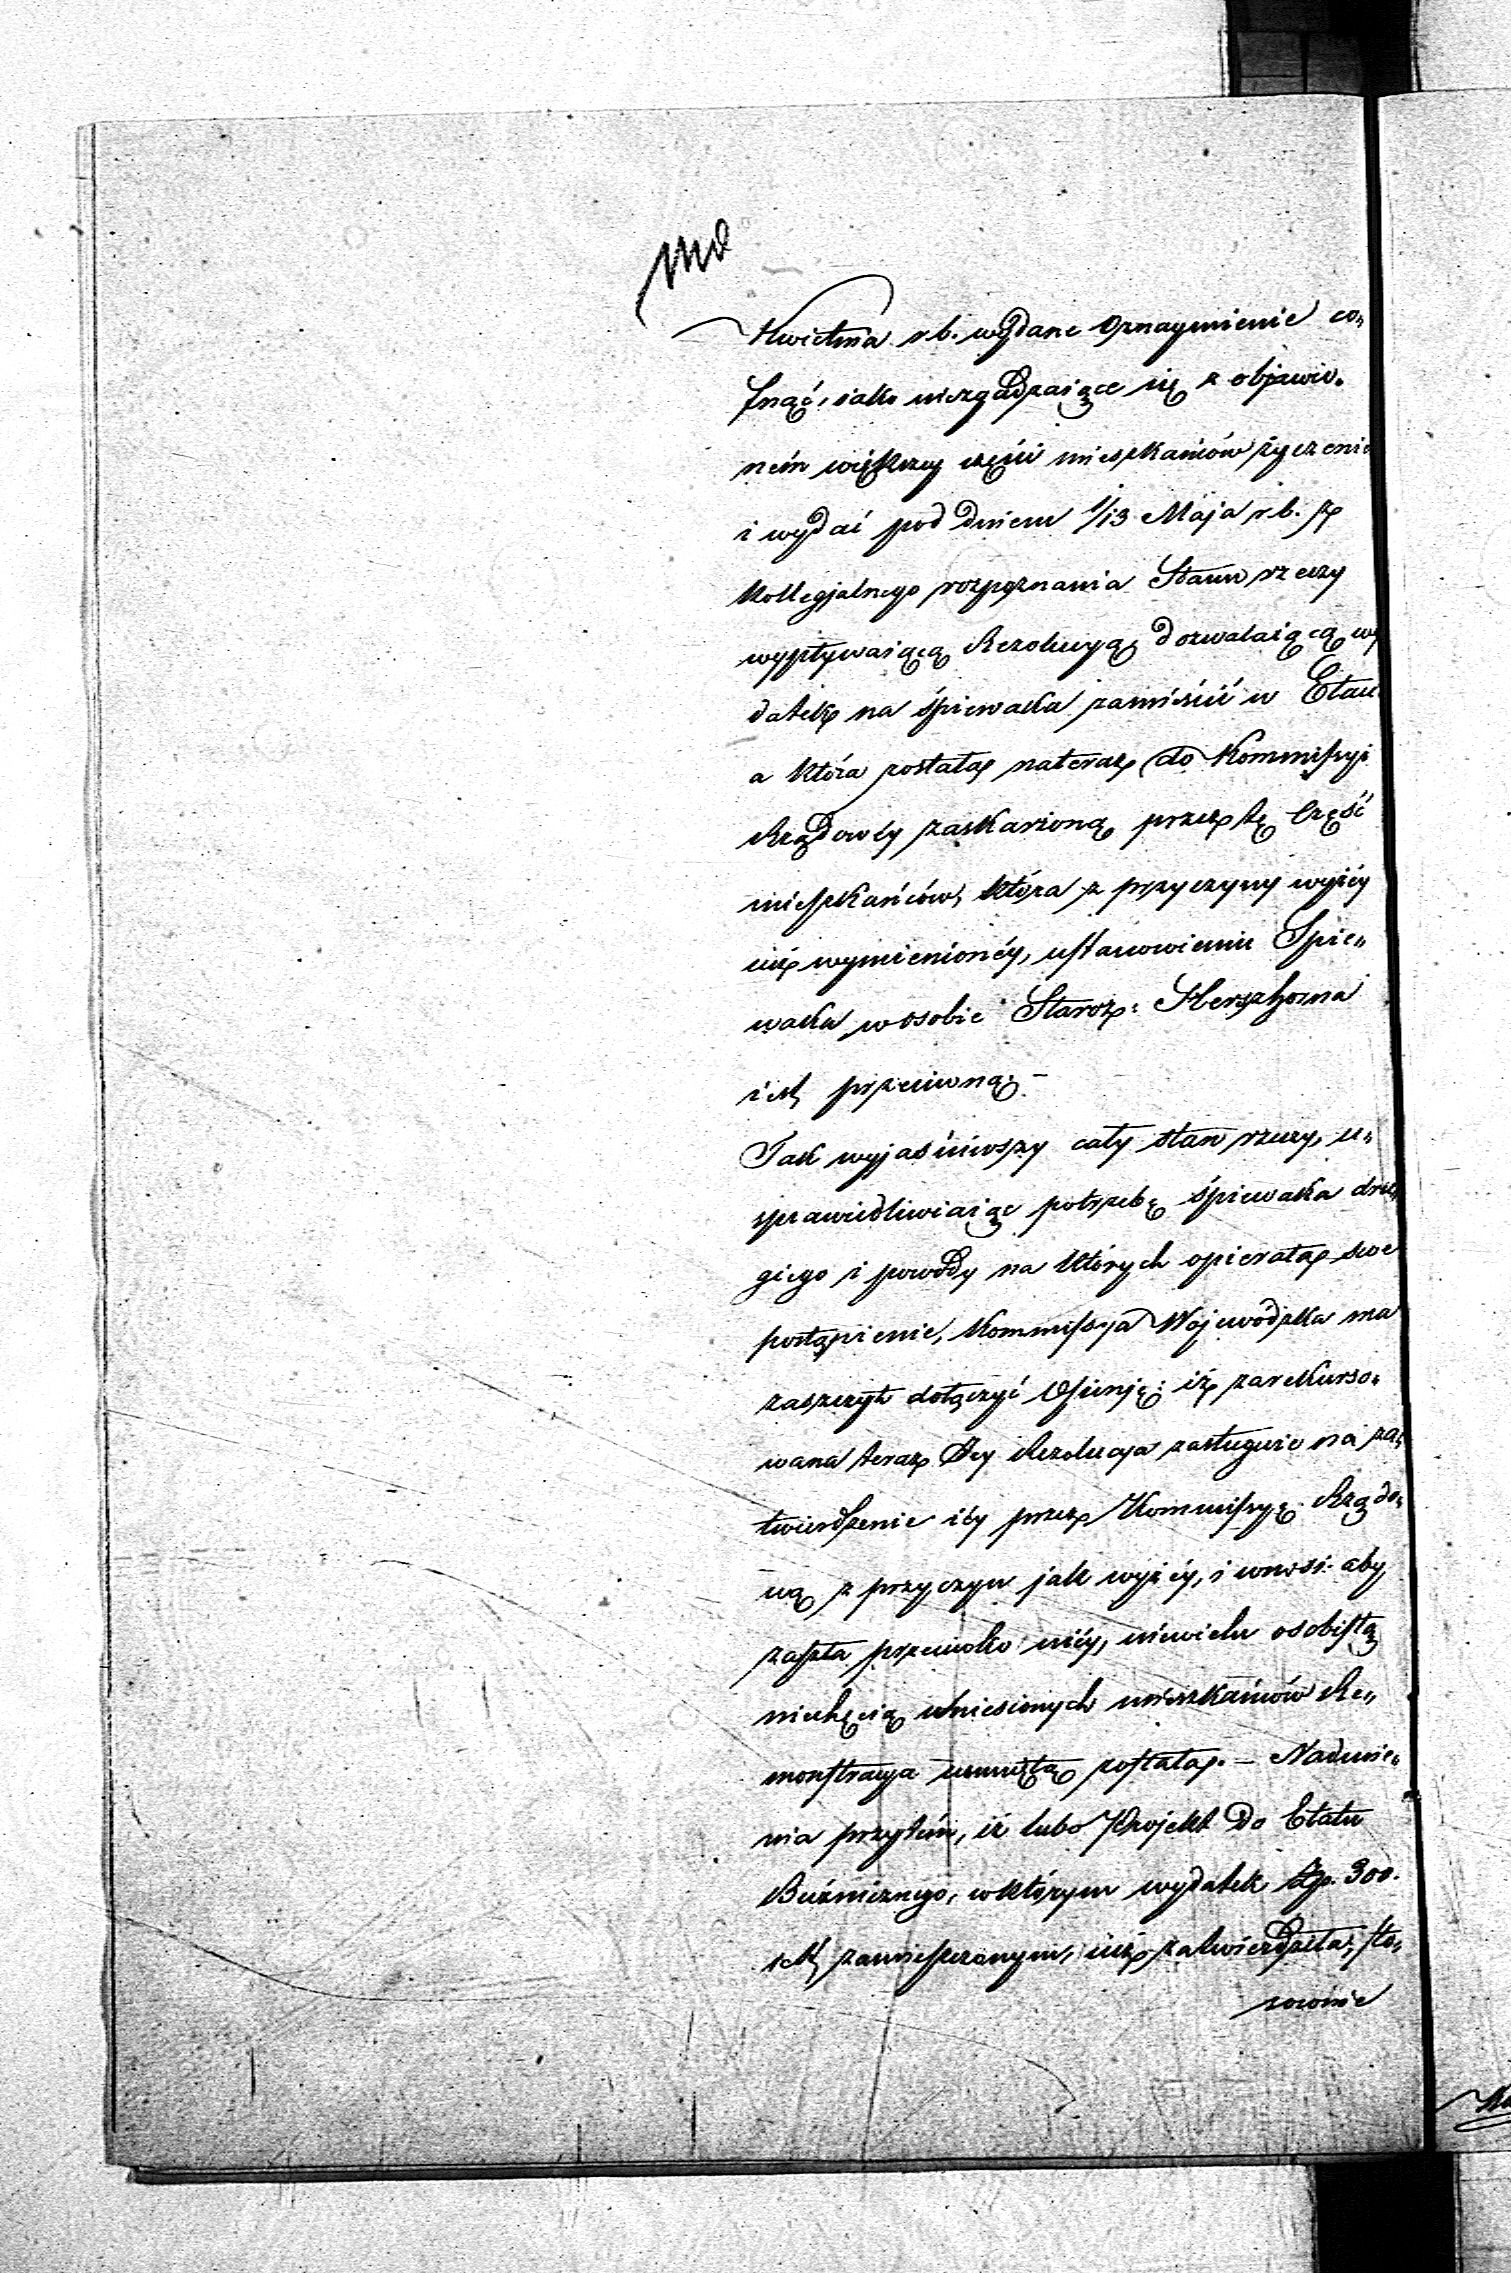 Kwietnia r. b. wydane Oznaymienie co„
fnąć, iako niezgadzaiące się z objawio„
nem większey części mieszkańców życzenie
i wydać pod dniem 1/13 Maja r. b. z
kollegjalnego rozpoznania Stanu rzeczy
wypływaiącą Rezolucyą, dozwalaiącą wy
datek na śpiewaka zamieścić w Etac
a która została nateraz do Kommissyi
Rządowéy zaskarżoną przez tę Część
mieszkańców, która z przyczyny wyżéy
iuż wymienionéy, ustanowieniu Spie„
waka w osobie Staroz: Herszhorna
iest przeciwną. –
Tak wyjaśniwszy cały stan rzeczy, u„
sprawiedliwiaiąc potrzebę śpiewaka dru„
giego i powody na których opierała swe
postąpienie, Kommissya Wojewódzka ma
zaszczyt dołączyć Opinję: iż zarekurso„
wana teraz Jey Rezolucya zasługuie na za„
twierdzenie iéy przez Kommissyę Rządo„
wą z przyczyn jak wyżéy, i wnosi aby
zaszła przeciwko niéy, niewielu osobistą
niechęcią uniesionych mieszkańców Re„
monstracya usuniętą została. – Nadmie„
nia przytém, iż lubo Projekt do Etatu
Bużnicznego, w którym wydatek Zp. 300.
iest zamieszczonym, iuż zatwierdziła, sto„
sownie